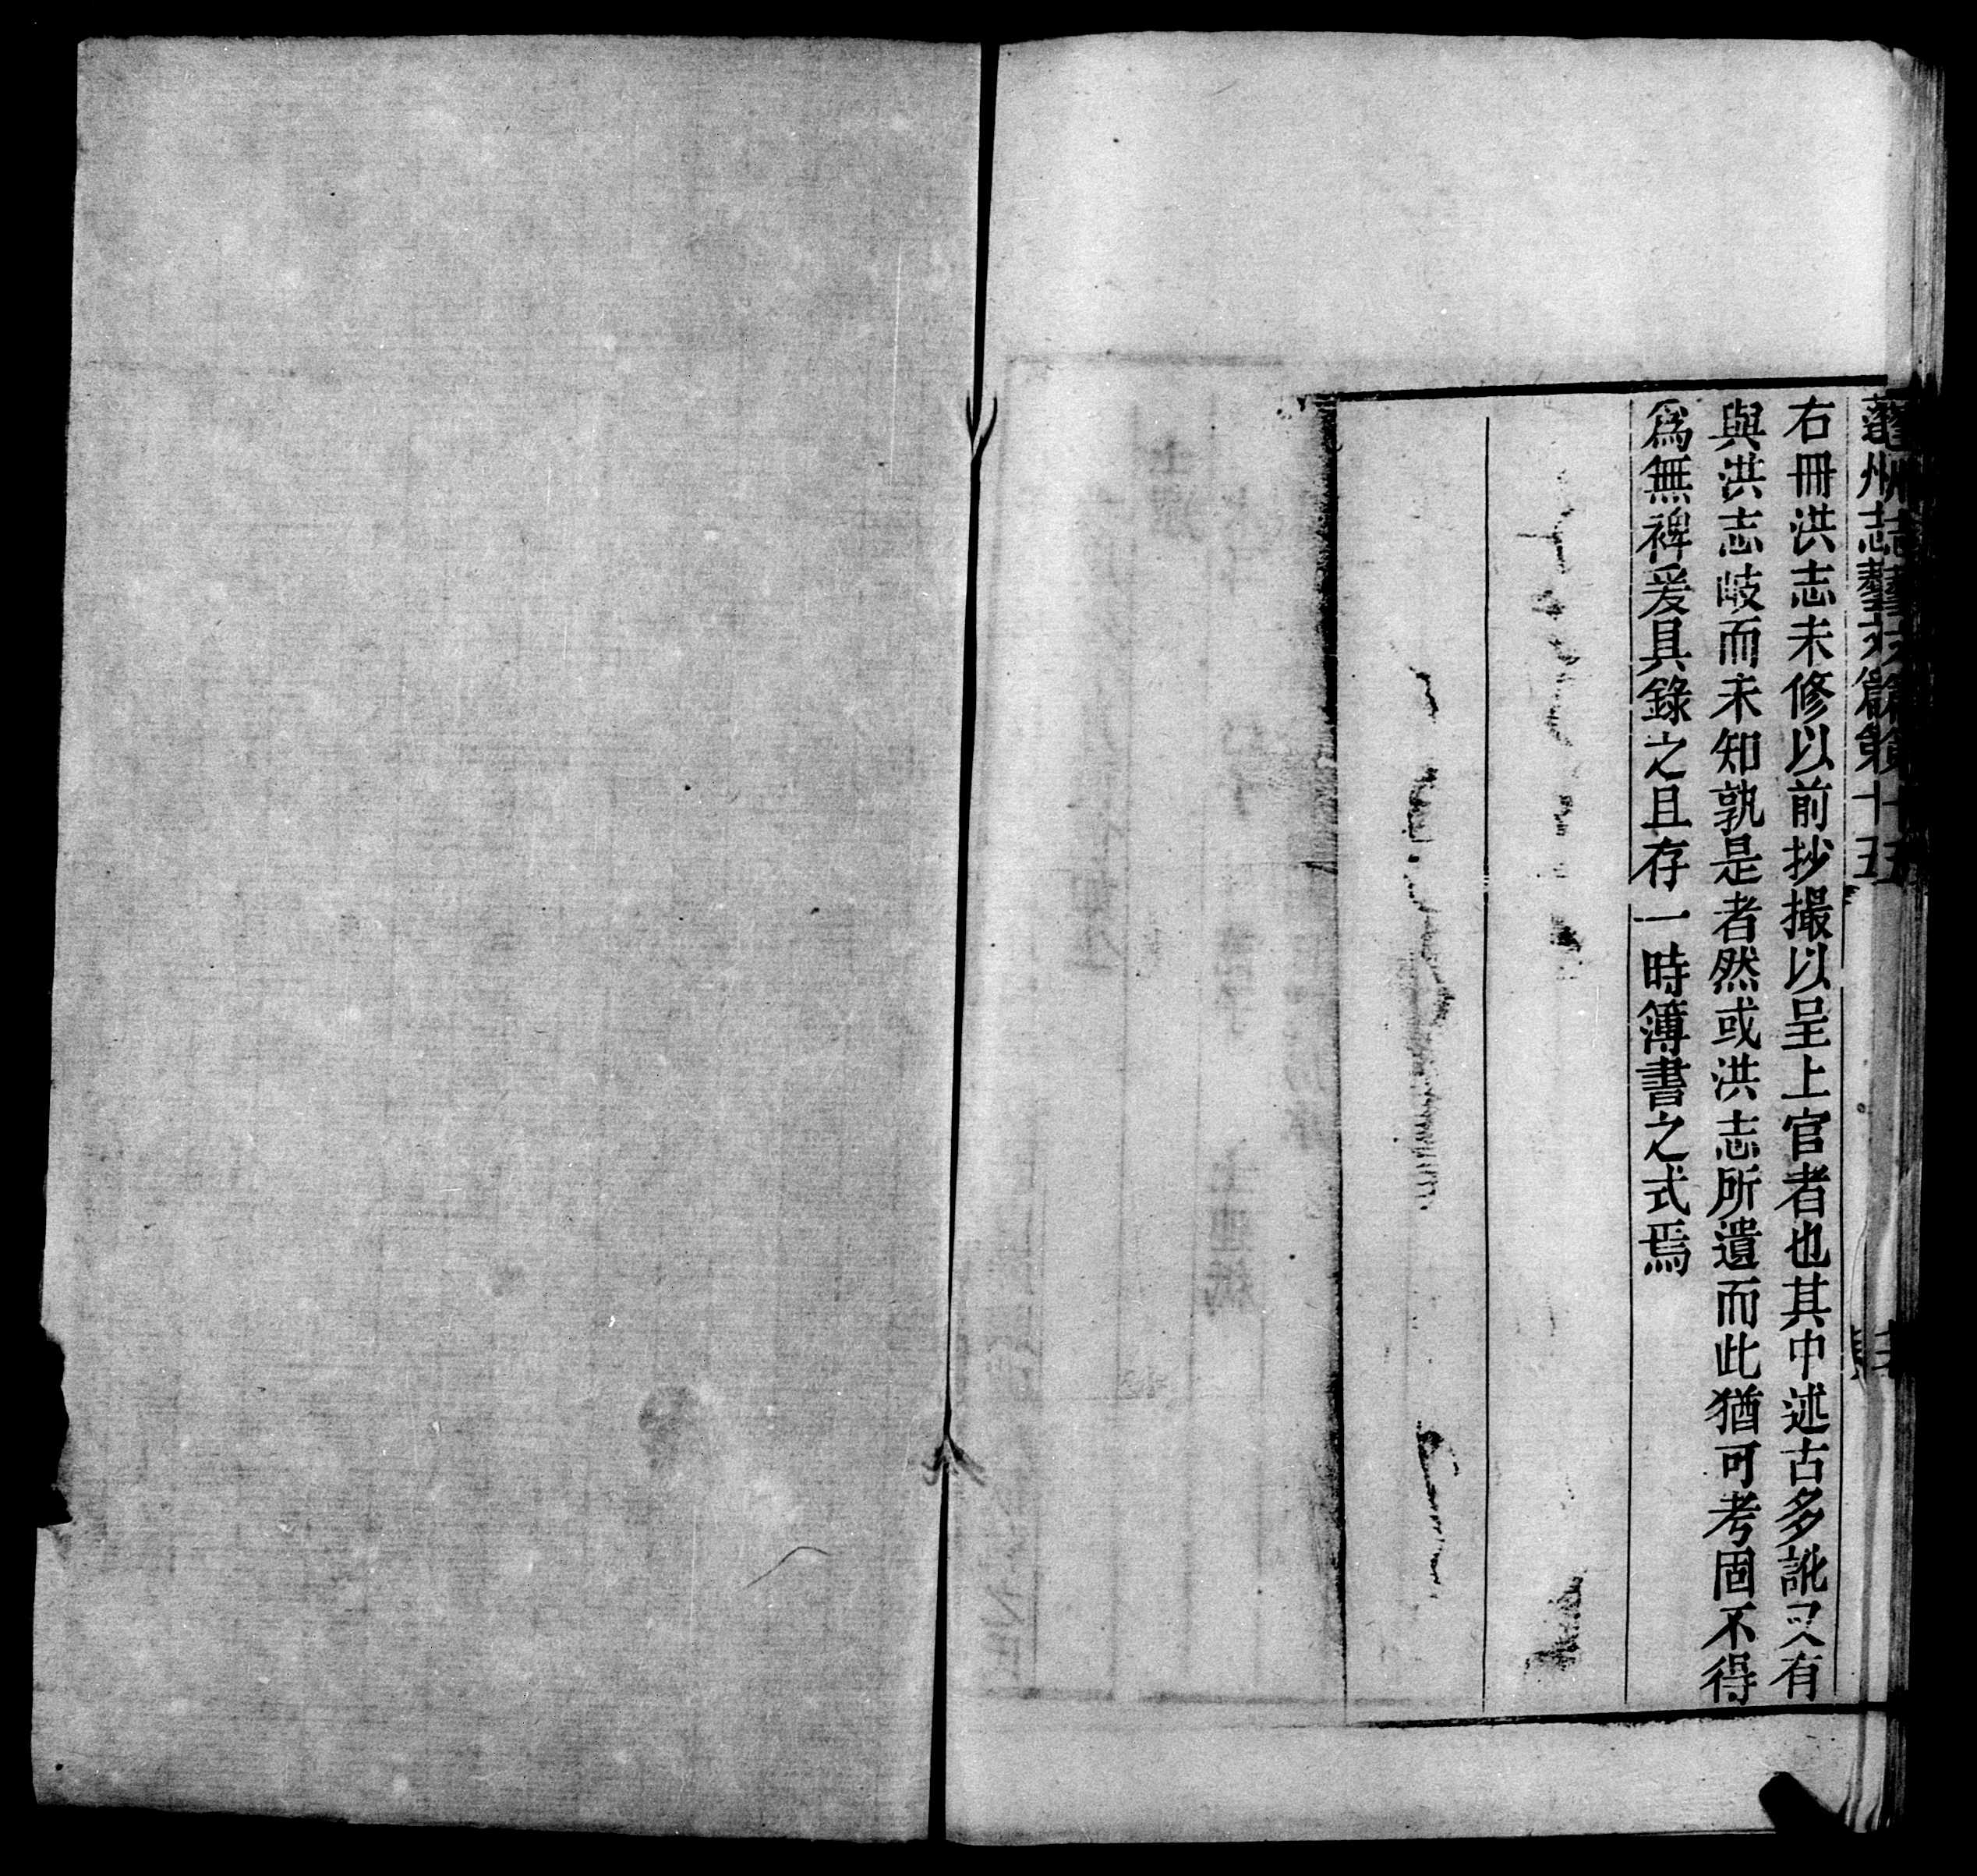 蓬州志藝文篇第十五
右冊洪志未修以前抄撮以呈上官者也其中述古多訛又有
與洪志岐而未知孰是者然或洪志所遺而此猶可考固不得
爲無裨爰具錄之且存一時簿書之式焉